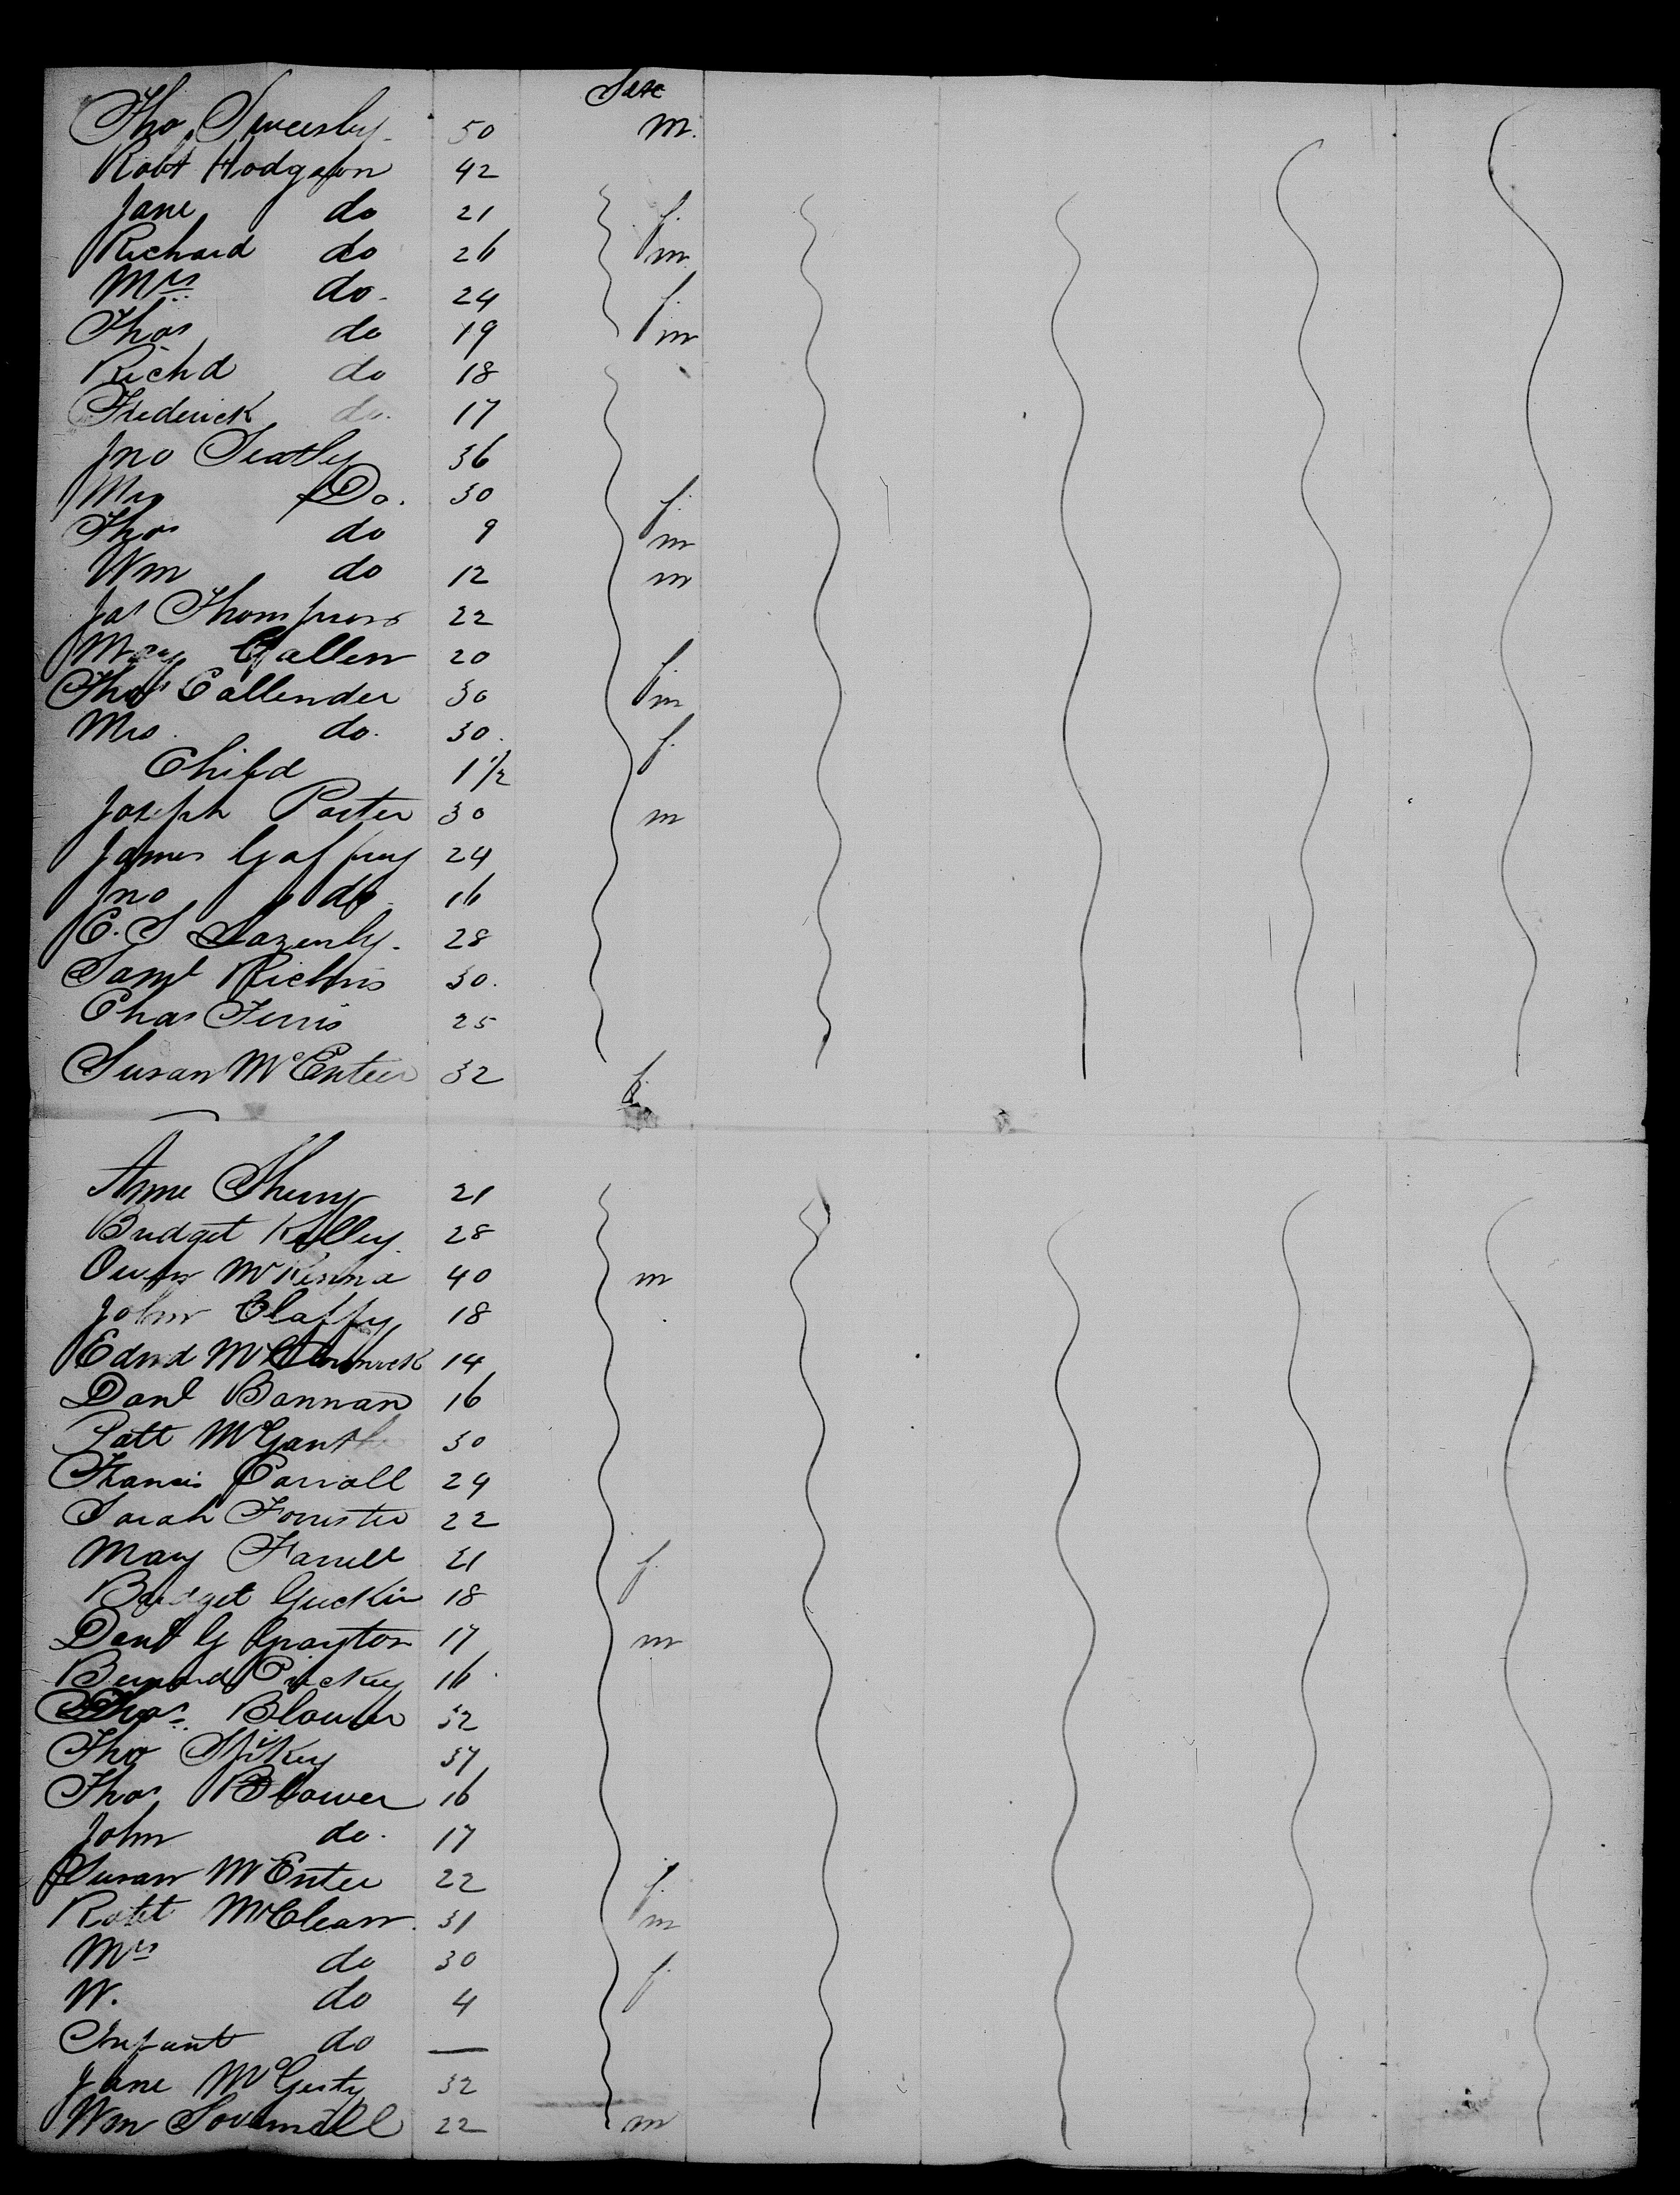 Sex
Tho Sweesby 50 m.
Robt Hodgson 42
Jane do 21 f.
Richard do 26 m
Mrs do. 24 f.
Thos do 19 m
Richd do 18
Frederick do. 17
Jno Seatly 36
Mrs Do. 30 f.
Thos do 9 m
Wm do 12 m
Jas Thompson 22
Mary Gallen 20 f.
Thos Callender 30 m
Mrs. do. 30. f.
Child 1 1/2
Joseph Porter 30 m
James Gaffrey 24
Jno do 16
E. S Lazenby. 28
Saml Richms 30.
Chas Ferris 25
Susan McEnteer 32 f.
Anne Sherry 21
Bridget Kelley. 28
Owen McKenna 40 m
John Claffy 18
Edwd 14
Danl Bannan 16
Patt 30
Francis Carroll 24
Sarah Forrester 22
Mary Farrell 21 f.
Bridget Guckin 18
Danl G Grayton 17 m
Bernard 16
Thos. Blower 32
Tho Spikey 37
Thos Blower 16
John do. 17
Susan McEntee 22 f.
Robt McClean. 31 m
Mrs do 30 f.
W. do 4
Infant do —
Jane McGerty 32
Wm 22 m